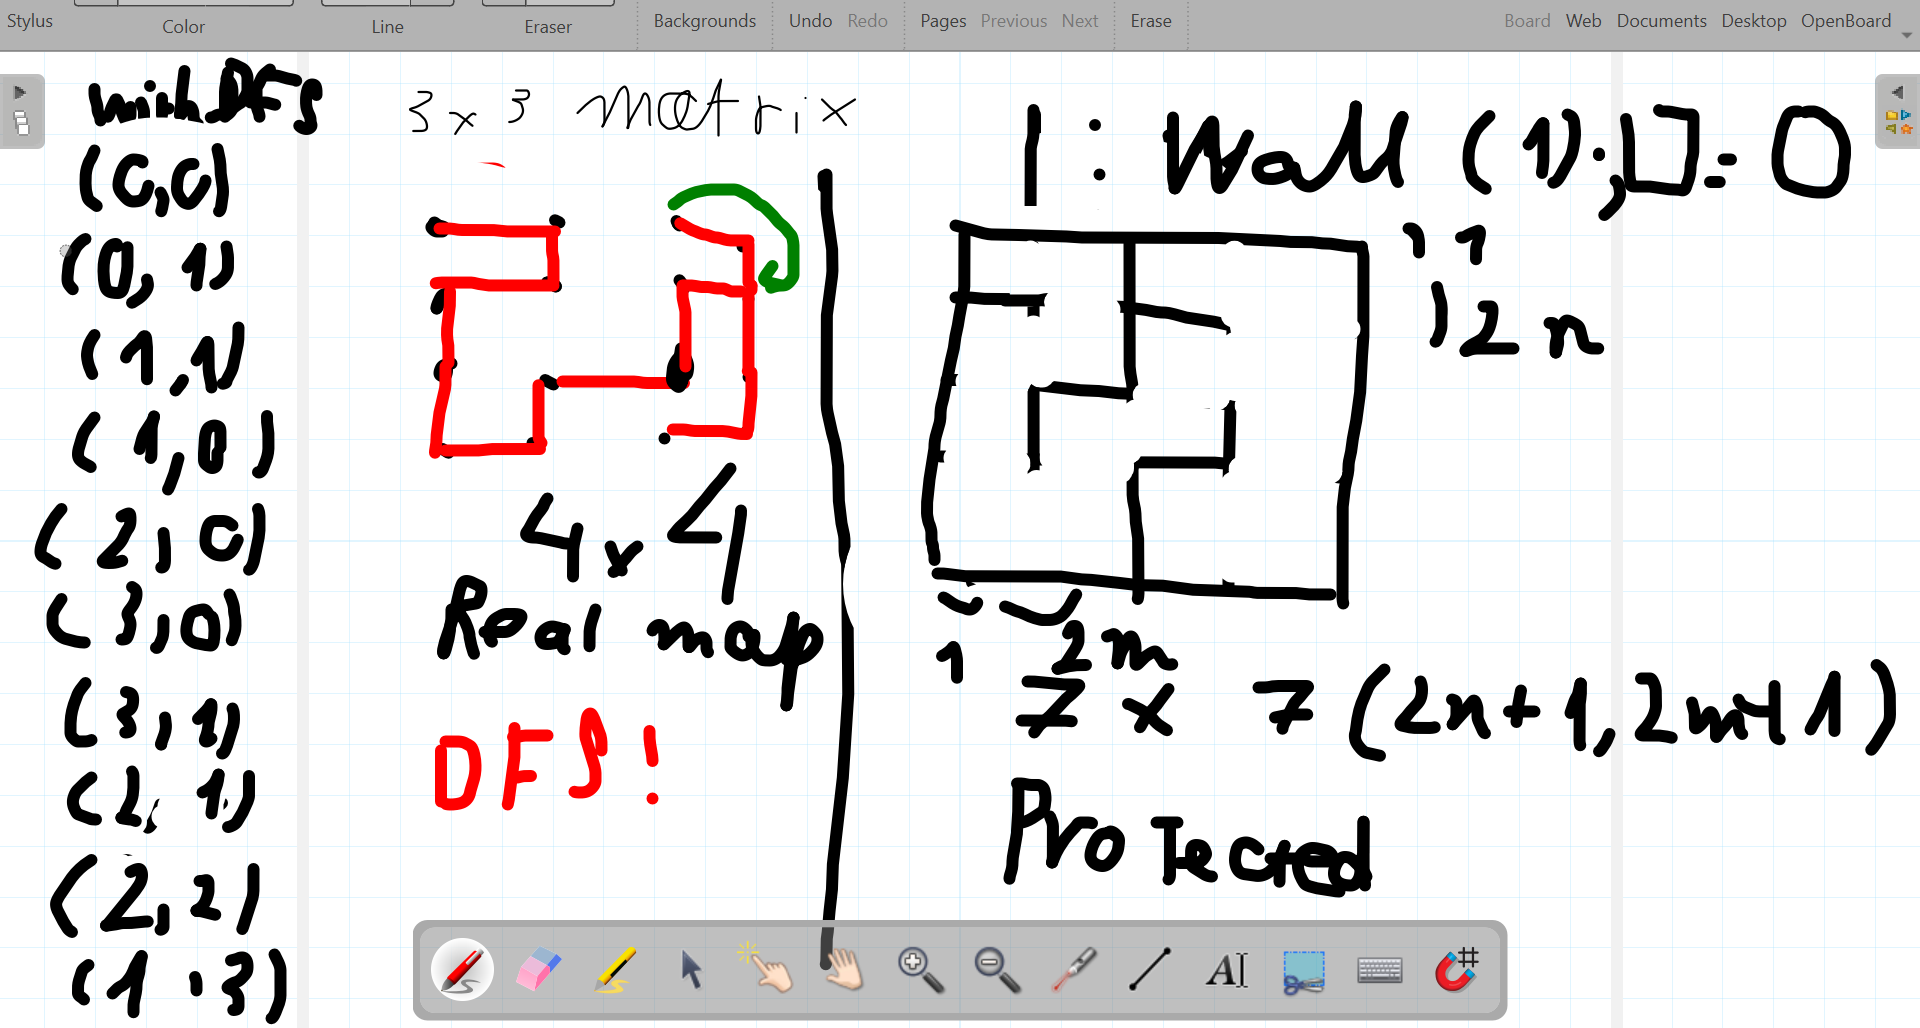 Stylus Color Line Eraser Backgrounds Undo Redo Pages Previous Next Erase Board Web Documents Desktop OpenBoard
with DFS
(0,0)
(0, 1)
(1,1)
(1,0)
(2,0)
(3,0)
(3,1)
(2,1)
(2,2)
(1,3)
3x3 matrix
4x4
Real map
DFS!
1: Wall (1); □=0
1
2n
1 2m
7 x 7 (2n+1, 2m+1)
Protected
AI